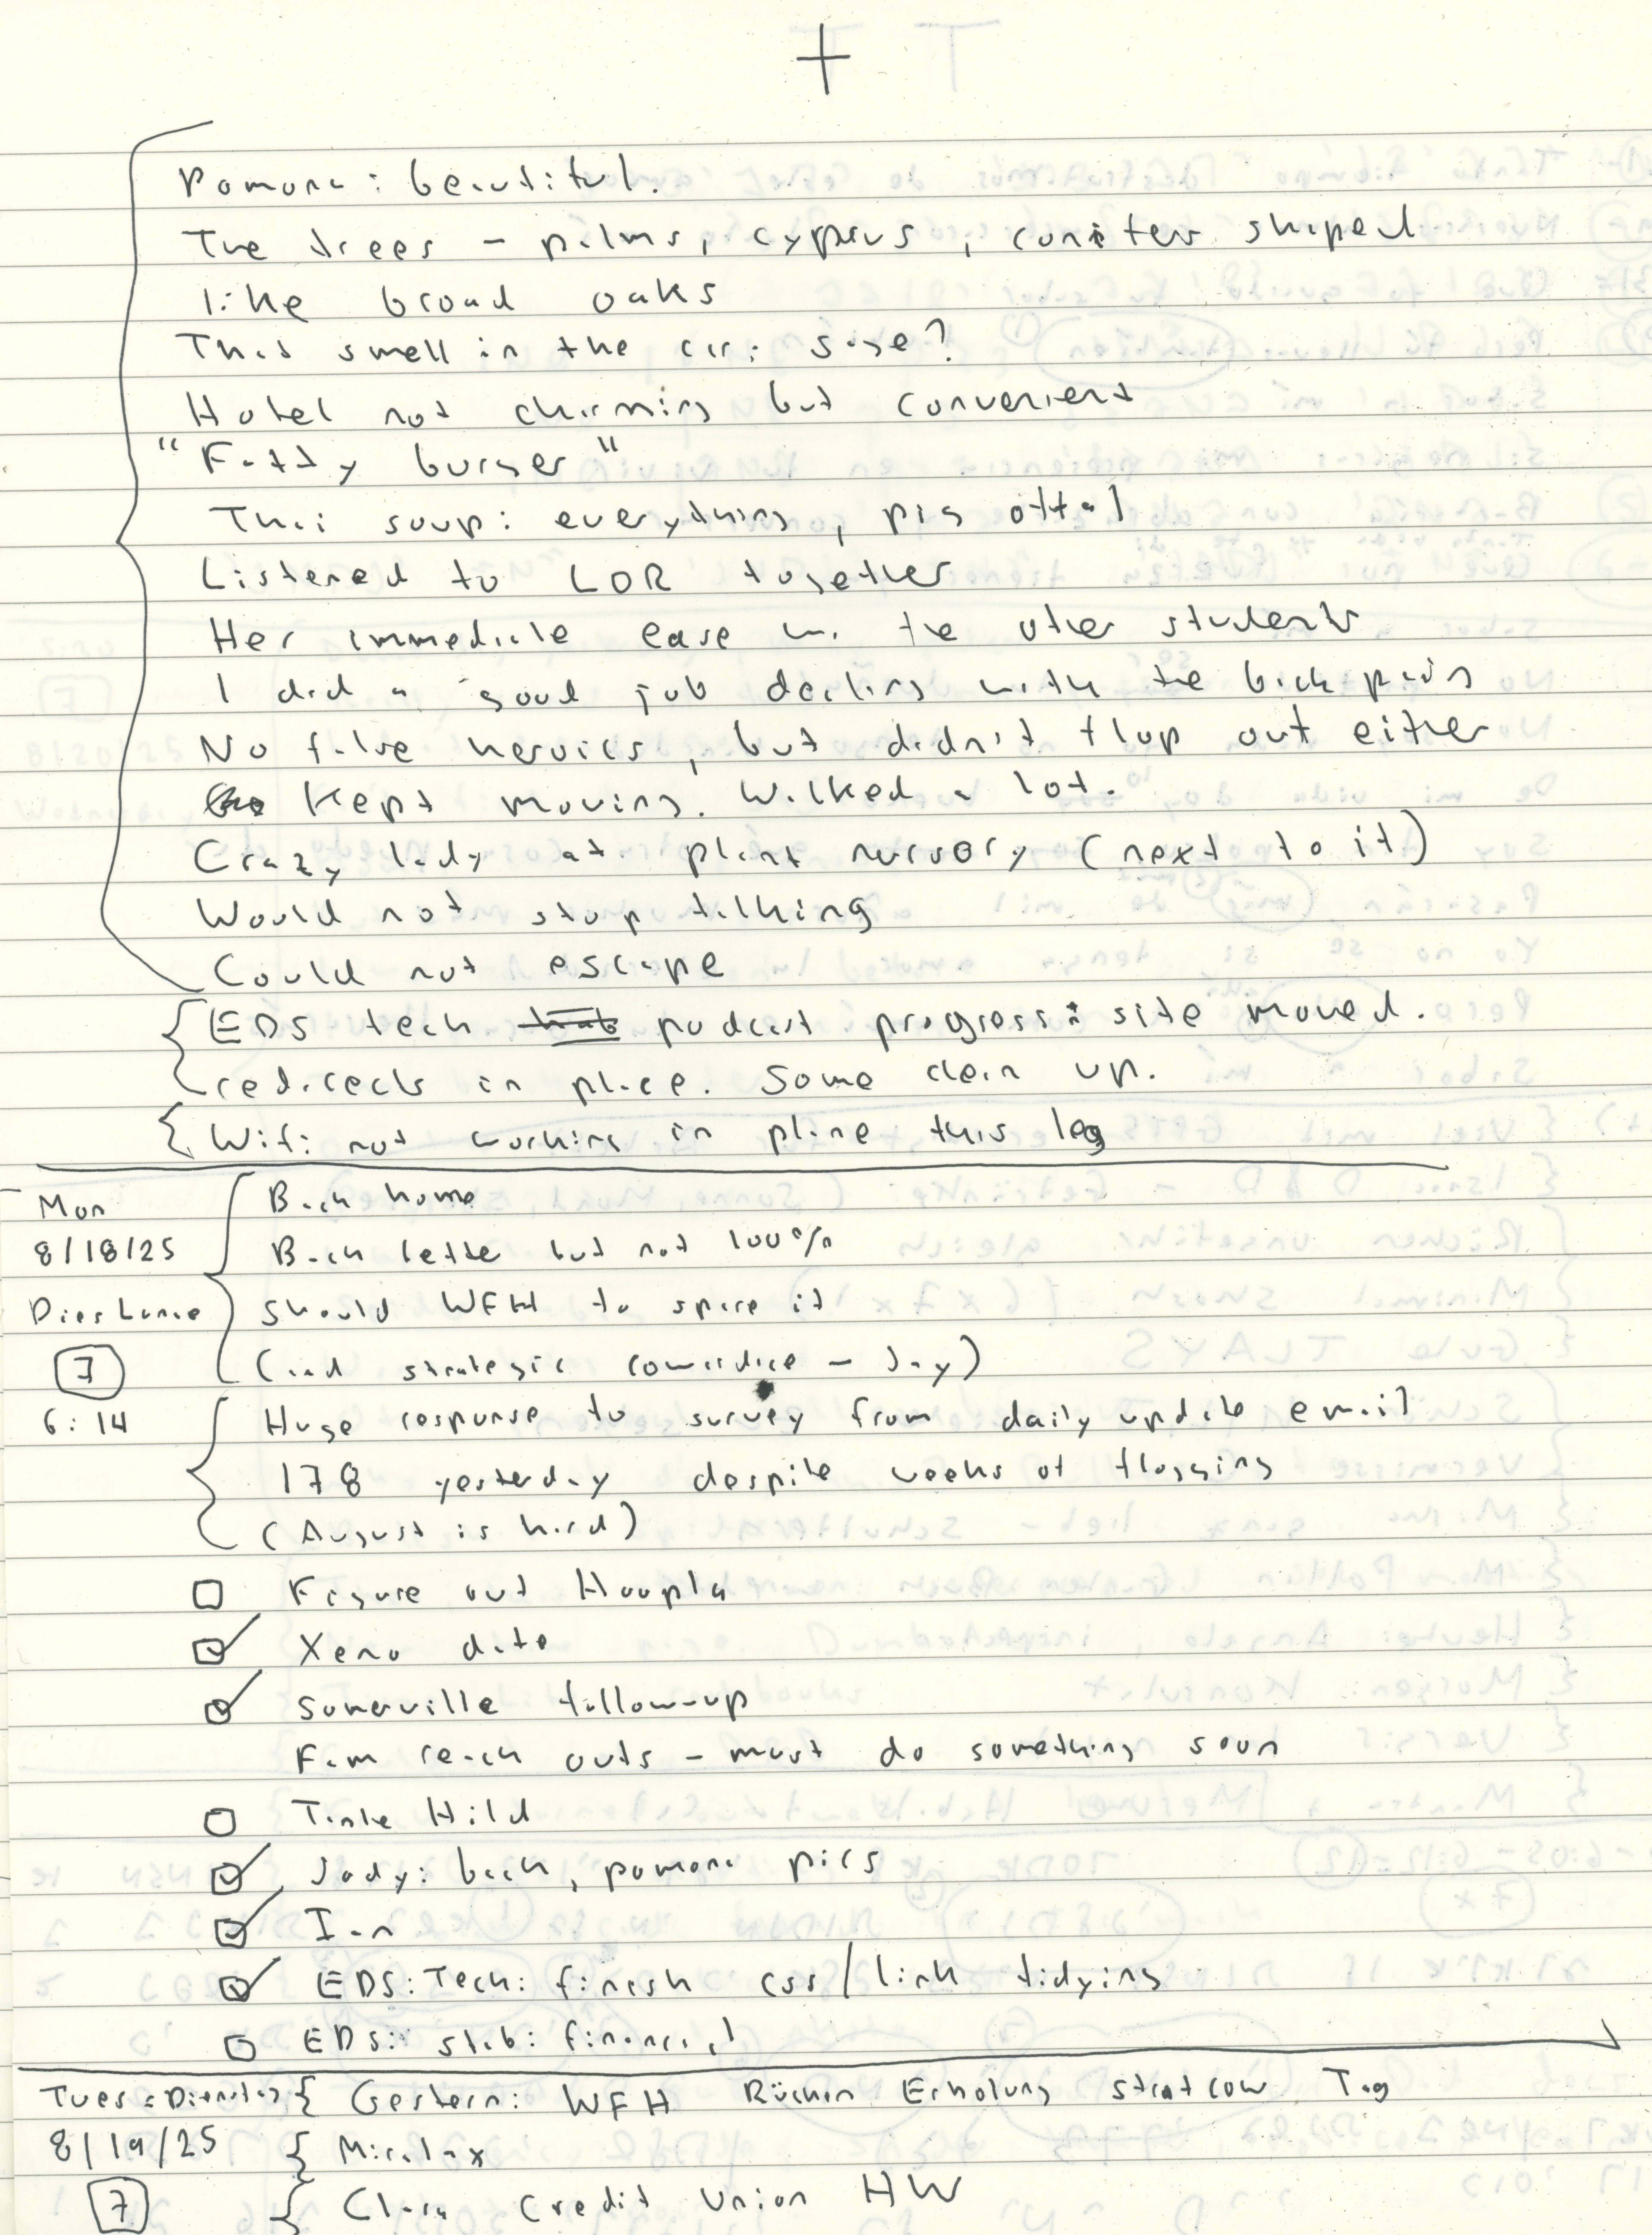 +
Pomona: beautiful.
The trees – palms, cyprus, conifers shaped
like broad oaks
That smell in the air: sage?
Hotel not charming but convenient
"Fatty burger"
Thai soup: everything, pig offal
Listened to LDR together
Her immediate ease w. the other students
I did a good job dealing with the back pain
No false heroics, but didn't flop out either
Kept moving. Walked a lot.
Crazy lady at plant nursory (next to it)
Would not stop talking
Could not escape
EDS tech podcast progress: site moved.
redirects in place. Some clean up.
Wifi not working in plane this leg
Mon
8/18/25
Dies Lunae
7
6:14
Back home
Back better but not 100%
Should WFH to spare it
(and strategic cowardice – Jay)
Huge response to survey from daily update email
178 yesterday despite weeks of flogging
(August is hard)
Figure out Hoopla
Xeno data
Somerville follow-up
Fam reach outs – must do something soon
Tante Hild
Jody: back, pomona pics
Ian
EDS: Tech: finish css/link tidying
EDS: stab: financial
Tues = Dienstag
8/19/25
7
Gestern: WFH Rücken Erholung stratcow Tag
Miralax
Clara Credit Union HW